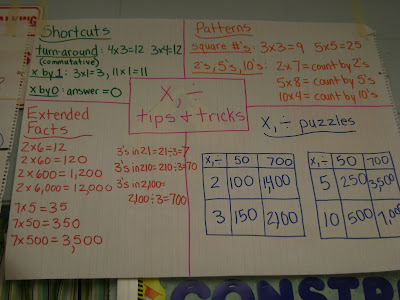 Shortcuts
turn-around: 4x3=12 3x4=12
(commutative)
x by 1: 3x1=3, 11x1=11
x by 0: answer = 0
Patterns
square #'s: 3x3=9 5x5=25
2's, 5's, 10's: 2x7=count by 2's
5x8=count by 5's
10x4=count by 10's
X, ÷
tips & tricks
Extended
Facts
2x6=12
2x60=120
2x600=1,200
2x6,000=12,000
7x5=35
7x50=350
7x500=3,500
3's in 21=21÷3=7
3's in 210=210÷3=70
3's in 2,100=
2,100÷3=700
X, ÷ puzzles
X,÷ 50 700
2 100 1,400
3 150 2,100
X,÷ 50 700
5 250 3,500
10 500 7,000
CONSTR